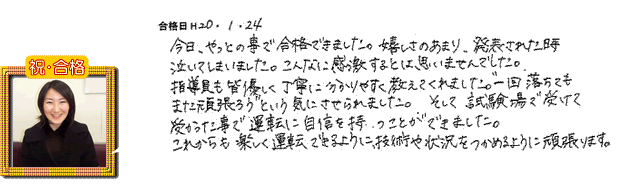 合格日 H20・1・24
今日、やっとの事で合格できました。嬉しさのあまり、発表された時
泣いてしまいました。こんなに感激するとは思いませんでした。
指導員も皆優しく丁寧に分かりやすく教えてくれました。“一回落ちても
また頑張ろう”という気にさせられました。そして試験場で受けて
受かった事で運転に自信を持つことができました。
これからも楽しく運転できるように、技術や状況をつかめるように頑張ります。
祝・合格